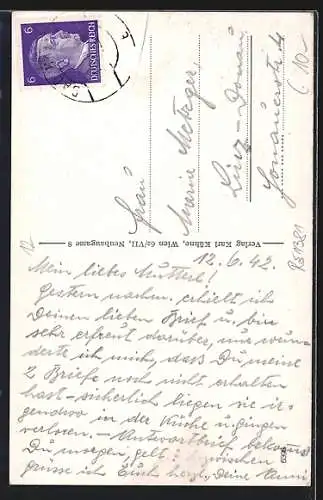 12.6.42.
Mein liebes Mutterl!
Gestern nachm. erhielt ich
Deinen lieben Brief u. bin
sehr erfreut darüber, nur wun-
derte ich mich, daß Du meine
2 Briefe noch nicht erhalten
hast – sicherlich liegen sie ir-
gendwo in der Küche u. gingen
verloren. – Antwortbrief bekomms
Du morgen, gelt?
grüsse ich Euch herzl. Deine
Verlag Karl Kühne, Wien 62/VII, Neubaugasse 8
Frau
Marie Metzger
Linz – Donau
DEUTSCHES REICH
6
6
12
RS1321